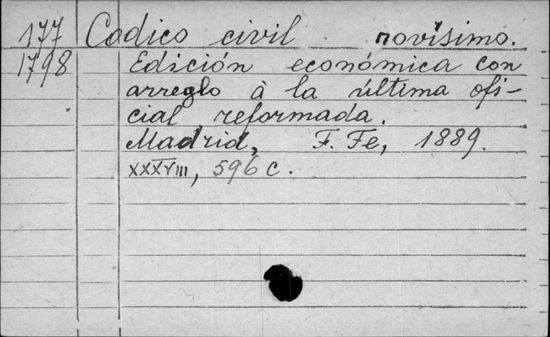 177 Codico civil novísimo.
1798 Edición económica con
arreglo à la última ofi-
cial reformada.
Madrid, F. Fe, 1889.
XXXVIII, 596 c.